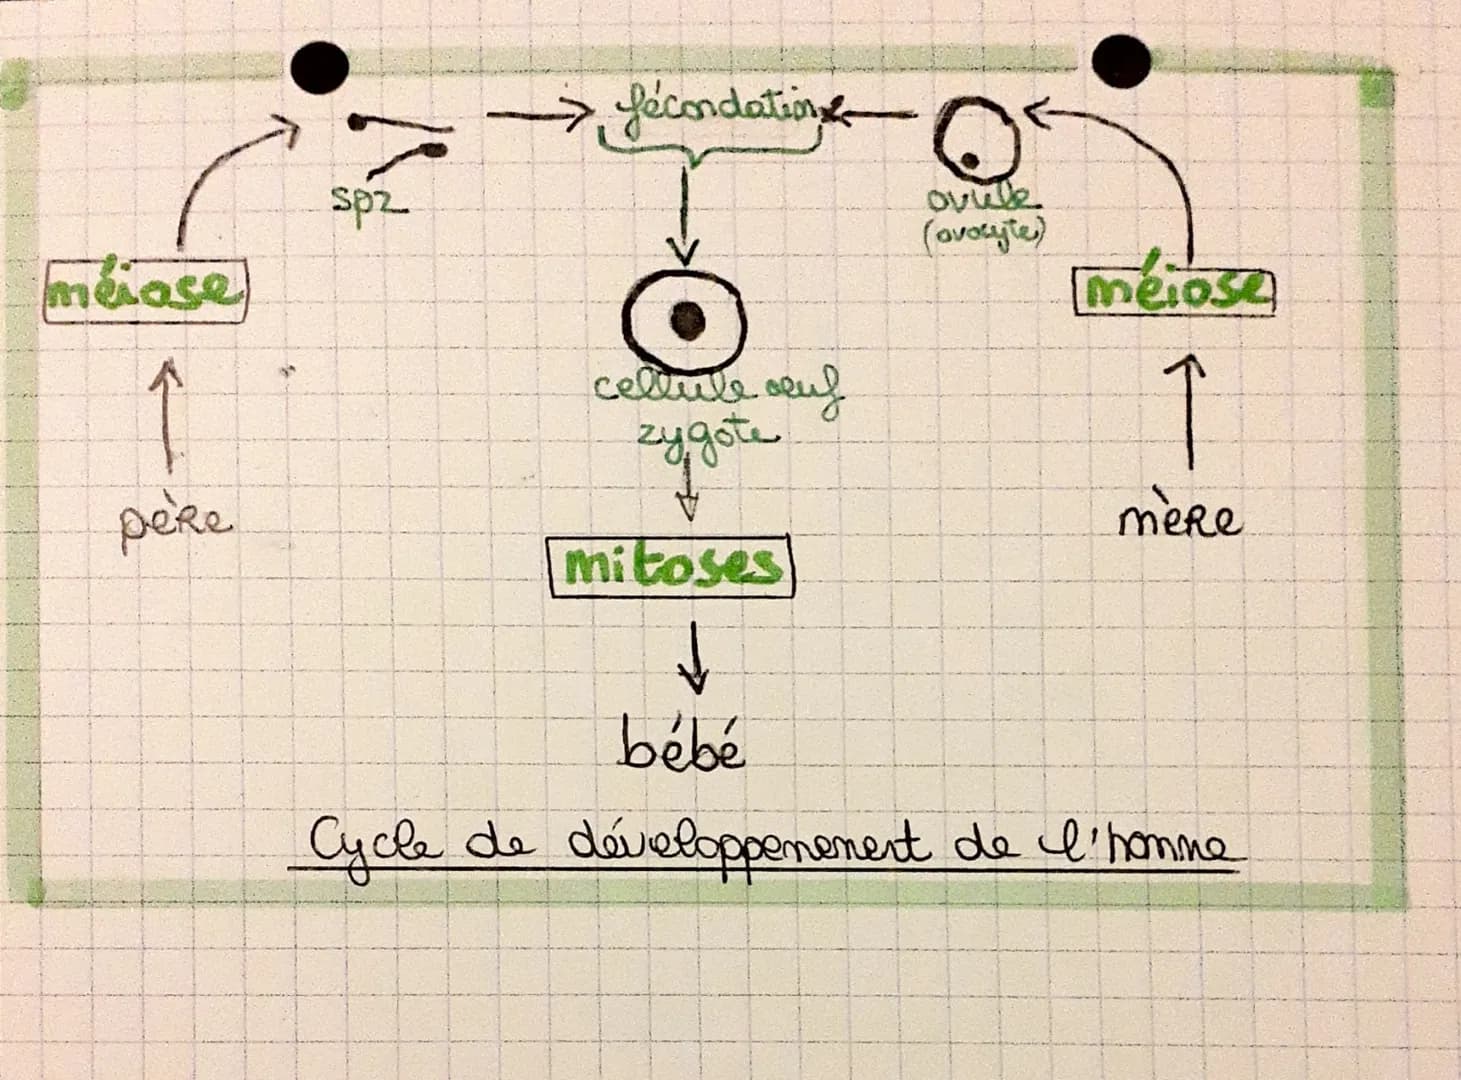 fécondation
spz
ovule
(ovocyte)
méiose
méiose
cellule œuf
zygote
père
mère
mitoses
bébé
Cycle de développemenent de l'homme